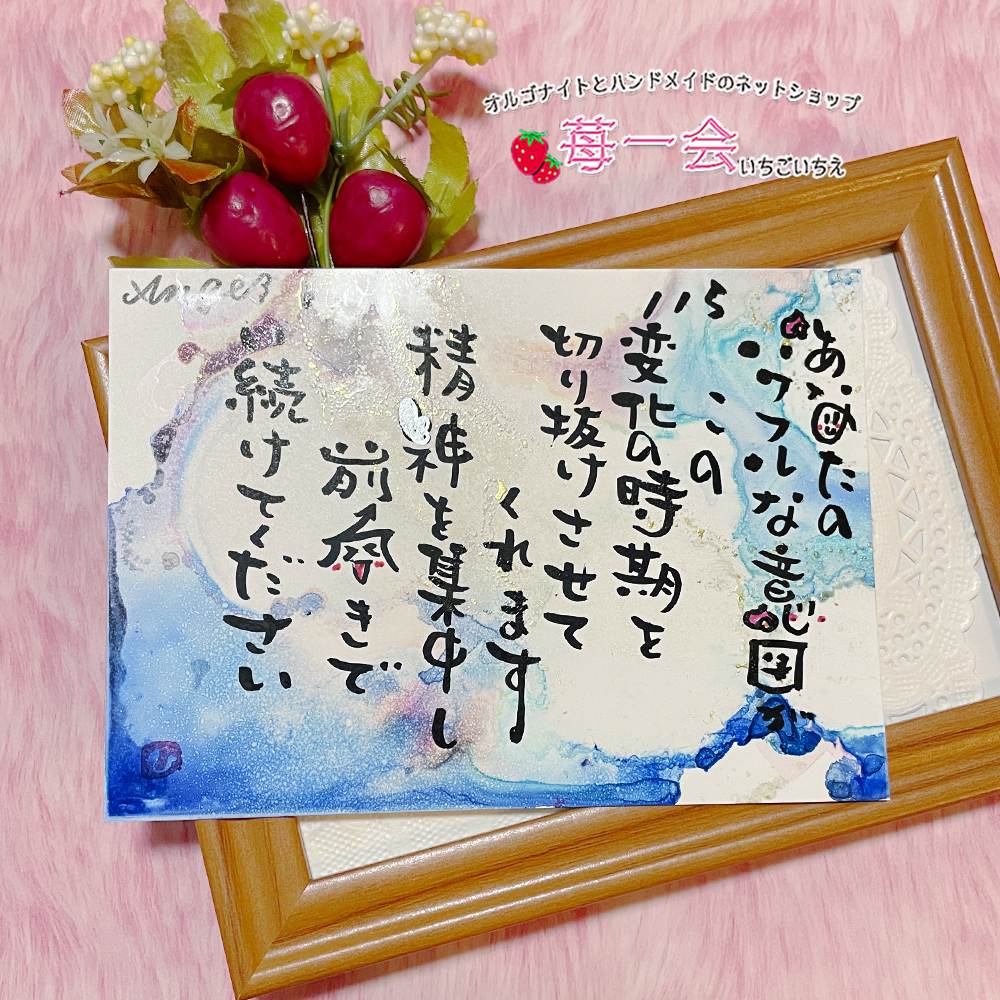 オルゴナイトとハンドメイドのネットショップ
苺一会
いちごいちえ
あなたの
パワフルな意図が
この
変化の時期を
切り抜けさせて
くれます
精神を集中し
前向きで
い続けてください
115